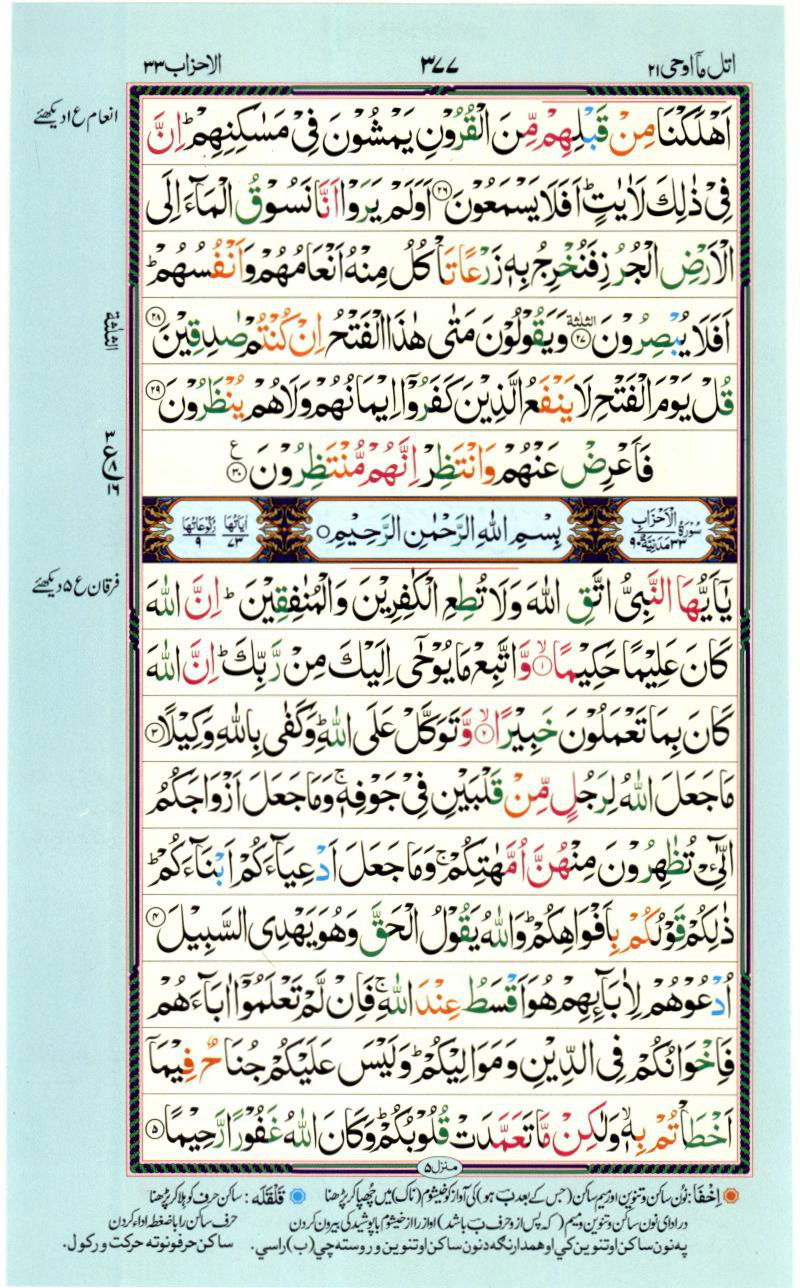 اتل مآ اوحی ۲۱
۳۷۷
الاحزاب ۳۳
انعام ع ۱ دیکھئے
اَهْلَكْنَا مِنْ قَبْلِهِمْ مِّنَ الْقُرُوْنِ يَمْشُوْنَ فِىْ مَسٰكِنِهِمْ ؕ اِنَّ
فِىْ ذٰلِكَ لَاٰيٰتٍ ؕ اَفَلَا يَسْمَعُوْنَ ﴿۲۶﴾ اَوَلَمْ يَرَوْا اَنَّا نَسُوْقُ الْمَآءَ اِلَى
الْاَرْضِ الْجُرُزِ فَنُخْرِجُ بِهٖ زَرْعًا تَاْكُلُ مِنْهُ اَنْعَامُهُمْ وَاَنْفُسُهُمْ ؕ
اَفَلَا يُبْصِرُوْنَ ﴿۲۷﴾ الثلثة وَيَقُوْلُوْنَ مَتٰى هٰذَا الْفَتْحُ اِنْ كُنْتُمْ صٰدِقِيْنَ ﴿۲۸﴾
الثلثة
قُلْ يَوْمَ الْفَتْحِ لَا يَنْفَعُ الَّذِيْنَ كَفَرُوْۤا اِيْمَانُهُمْ وَلَا هُمْ يُنْظَرُوْنَ ﴿۲۹﴾
فَاَعْرِضْ عَنْهُمْ وَانْتَظِرْ اِنَّهُمْ مُّنْتَظِرُوْنَ ﴿۳۰﴾ ع
۳ ع ۸ ۱۶
سُوْرَةُ الْاَحْزَابِ ۳۳ مَدَنِيَّةٌ ۹۰
بِسْمِ اللّٰهِ الرَّحْمٰنِ الرَّحِيْمِ ○
اٰيَاتُهَا ۷۳ رُكُوْعَاتُهَا ۹
فرقان ع ۵ دیکھئے
يٰۤاَيُّهَا النَّبِىُّ اتَّقِ اللّٰهَ وَلَا تُطِعِ الْكٰفِرِيْنَ وَالْمُنٰفِقِيْنَ ؕ اِنَّ اللّٰهَ
كَانَ عَلِيْمًا حَكِيْمًا ۙ﴿۱﴾ وَّاتَّبِعْ مَا يُوْحٰۤى اِلَيْكَ مِنْ رَّبِّكَ ؕ اِنَّ اللّٰهَ
كَانَ بِمَا تَعْمَلُوْنَ خَبِيْرًا ۙ﴿۲﴾ وَّتَوَكَّلْ عَلَى اللّٰهِ ؕ وَكَفٰى بِاللّٰهِ وَكِيْلًا ﴿۳﴾
مَا جَعَلَ اللّٰهُ لِرَجُلٍ مِّنْ قَلْبَيْنِ فِىْ جَوْفِهٖ ۚ وَمَا جَعَلَ اَزْوَاجَكُمُ
الّٰٓـِٔىْ تُظٰهِرُوْنَ مِنْهُنَّ اُمَّهٰتِكُمْ ۚ وَمَا جَعَلَ اَدْعِيَآءَكُمْ اَبْنَآءَكُمْ ؕ
ذٰلِكُمْ قَوْلُكُمْ بِاَفْوَاهِكُمْ ؕ وَاللّٰهُ يَقُوْلُ الْحَقَّ وَهُوَ يَهْدِى السَّبِيْلَ ﴿۴﴾
اُدْعُوْهُمْ لِاٰبَآئِهِمْ هُوَ اَقْسَطُ عِنْدَ اللّٰهِ ۚ فَاِنْ لَّمْ تَعْلَمُوْۤا اٰبَآءَهُمْ
فَاِخْوَانُكُمْ فِى الدِّيْنِ وَمَوَالِيْكُمْ ؕ وَلَيْسَ عَلَيْكُمْ جُنَاحٌ فِيْمَاۤ
اَخْطَاْتُمْ بِهٖ ۙ وَلٰكِنْ مَّا تَعَمَّدَتْ قُلُوْبُكُمْ ؕ وَكَانَ اللّٰهُ غَفُوْرًا رَّحِيْمًا ﴿۵﴾
منزل ۵
اِخْفَا : نُون ساکن و تنوین اور میم ساکن (جس کے بعد ب ہو) کی آواز کو خیشوم (ناک) میں چھپا کر پڑھنا
قَلْقَلَه : ساکن حرف کو ہلا کر پڑھنا
در ادای نون ساکن و تنوین و میم (که پس از و حرف ب باشد) اواز را از خیشوم با پوشیدگی بیرون کردن
حرف ساکن را با ضغط اداء کردن
په نون ساکن او تنوین کي او همدارنگه د نون ساکن او تنوین وروسته چي (ب) راسي.
ساکن حرفونو ته حرکت ورکول.